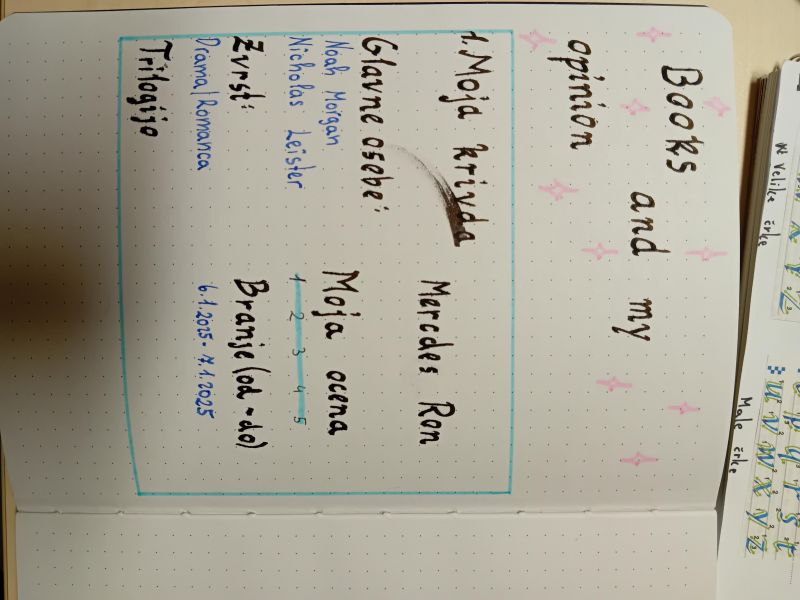 Books and my
opinion
1. Moja krivda
Mercdes Ron
Glavne osebe:
Noah Morgan
Nicholas Leister
Moja ocena
1 2 3 4 5
Zvrst:
Drama/Romanca
Branje (od - do)
6.1.2025 - 7.1.2025
Trilogijo
Velike črke
Male črke
u v w x y z